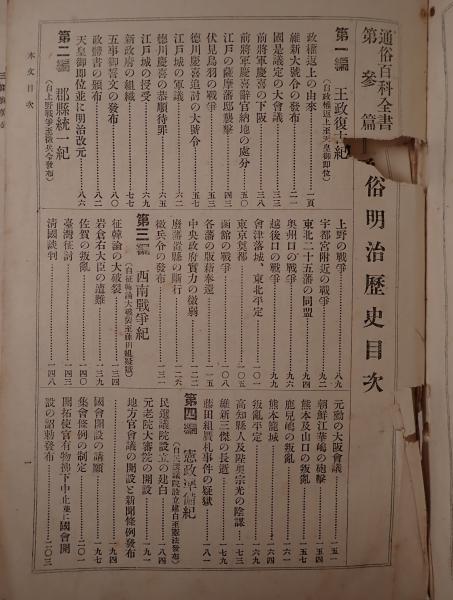 通俗百科全書
第參篇
俗明治歷史目次
第一編 王政復古紀
(自政權返上至天皇御即位)
政權返上の由來……一頁
維新大號令の發布……二一
國是議定の大會議……三三
前將軍慶喜の下阪……三八
前將軍慶喜辭官納地の處分……五〇
江戸の薩摩藩邸襲擊……五三
伏見鳥羽の戰爭……五五
德川慶喜追討の大號令……五七
江戸城の軍議……六二
德川慶喜の恭順待罪……六五
江戸城の授受……六九
新政府の組織……七七
五事御誓文の發布……八二
政體書の頒布……八四
天皇御即位並に明治改元……八六
第二編 郡縣統一紀
(自上野戰爭至徵兵令發布)
本文目次
上野の戰爭……八九
宇都宮附近の戰爭……九二
東北二十五藩の同盟……九四
奧州口の戰爭……九七
越後口の戰爭……九九
會津落城、東北平定……一〇一
東京奠都……一〇五
函館の戰爭……一〇八
各藩の版籍奉還……一一五
中央政府實力の微弱……一二二
廢藩置縣の斷行……一二六
徵兵令の發布……一三一
第三編 西南戰爭紀
(自征韓論大破裂至藤田組疑獄)
征韓論の大破裂……一三四
岩倉右大臣の遭難……一三九
佐賀の叛亂……一四〇
臺灣征討……一四三
淸國談判……一四八
元勳の大阪會議……一五一
朝鮮江華嶋の砲擊……一五四
熊本及山口の叛亂……一五五
鹿兒嶋の叛亂……一六一
熊本籠城……一六四
叛亂平定……一六九
高知縣人及陸奧宗光の陰謀……一七三
維新三傑の長逝……一七九
藤田組贋札事件の疑獄……一八一
第四編 憲政準備紀
(自民選議院設立建白至憲法發布)
民選議院設立の建白……一八四
元老院大審院の開設……一九一
地方官會議の開設と新聞條例發布
……一九四
國會開設の請願……一九七
集會條例の制定……一九九
開拓使官有物拂下中止並に國會開
設の詔勅發布……二〇三
一